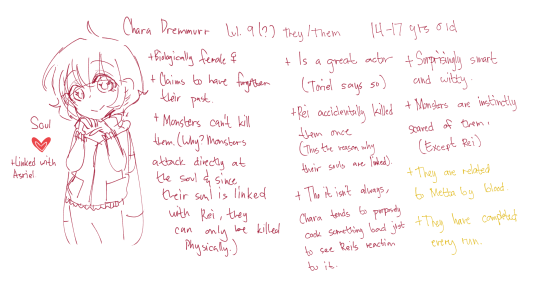 Chara Dremmurr Lvl. 9 (??) they/them 14-17 yrs old
Soul
+Linked with
Asriel
+Biologically female ♀
+ Claims to have forgotten
their past.
+ Monsters can't kill
them (Why? Monsters
attack directly at
the soul & since
their soul is linked
with Rei, they
can only be killed
Physically.)
+ Is a great actor
(Toriel says so)
+Rei accidentally killed
them once
(Thus the reason why
their souls are linked)
+ Tho it isn't always,
Chara tends to purposely
cook something bad just
to see Rei's reaction
to it.
+ Surprisingly smart
and witty.
+ Monsters are instinctly
scared of them.
(Except Rei)
+ They are related
to Metta by blood
+ They have completed
every run.